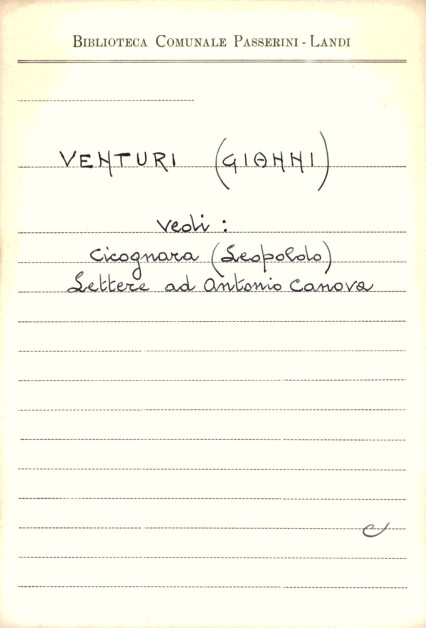 BIBLIOTECA COMUNALE PASSERINI - LANDI
VENTURI (GIANNI)
vedi :
Cicognara (Leopoldo)
Lettere ad Antonio Canova